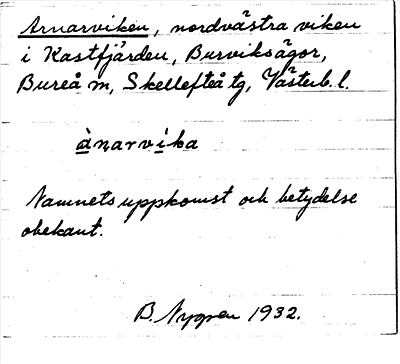 Arnarviken, nordvästra viken
i Kastfjärden, Burviksägor,
Bureå m, Skellefteå tg, Västerb. l.
ànarvika
Namnets uppkomst och betydelse
obekant.
B. Nygren 1932.